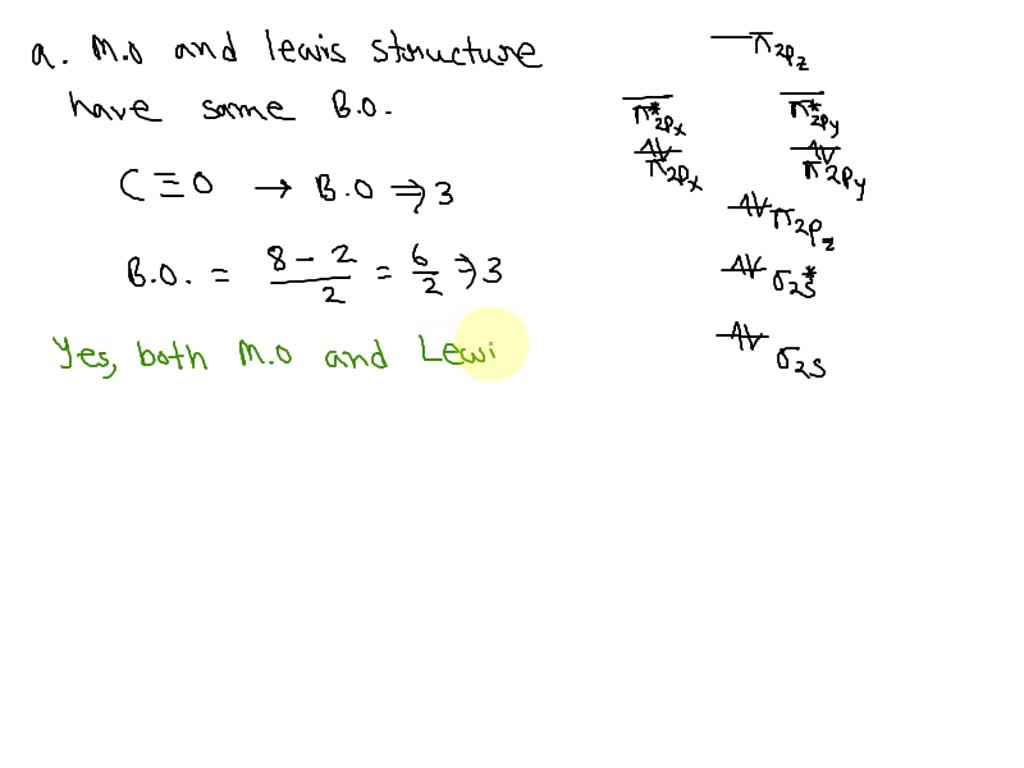 a. M.O and lewis structure
have same B.O.
C≡O → B.O ⇒ 3
B.O. = 8 - 2 / 2 = 6/2 ⇒ 3
Yes, both M.O and Lewi
π2pz
π*2px π*2py
π2px π2py
π2pz
σ2s*
σ2s